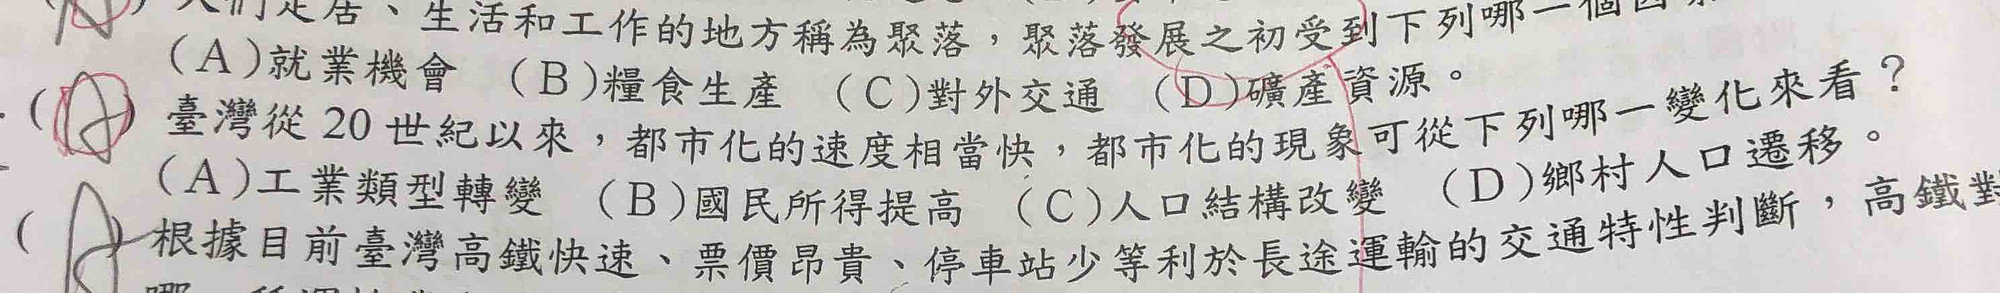 人們定居、生活和工作的地方稱為聚落，聚落發展之初受到下列哪一個因
(A)就業機會 (B)糧食生產 (C)對外交通 (D)礦產資源。
(A) 臺灣從 20 世紀以來，都市化的速度相當快，都市化的現象可從下列哪一變化來看？
(A)工業類型轉變 (B)國民所得提高 (C)人口結構改變 (D)鄉村人口遷移。
(A) 根據目前臺灣高鐵快速、票價昂貴、停車站少等利於長途運輸的交通特性判斷，高鐵對